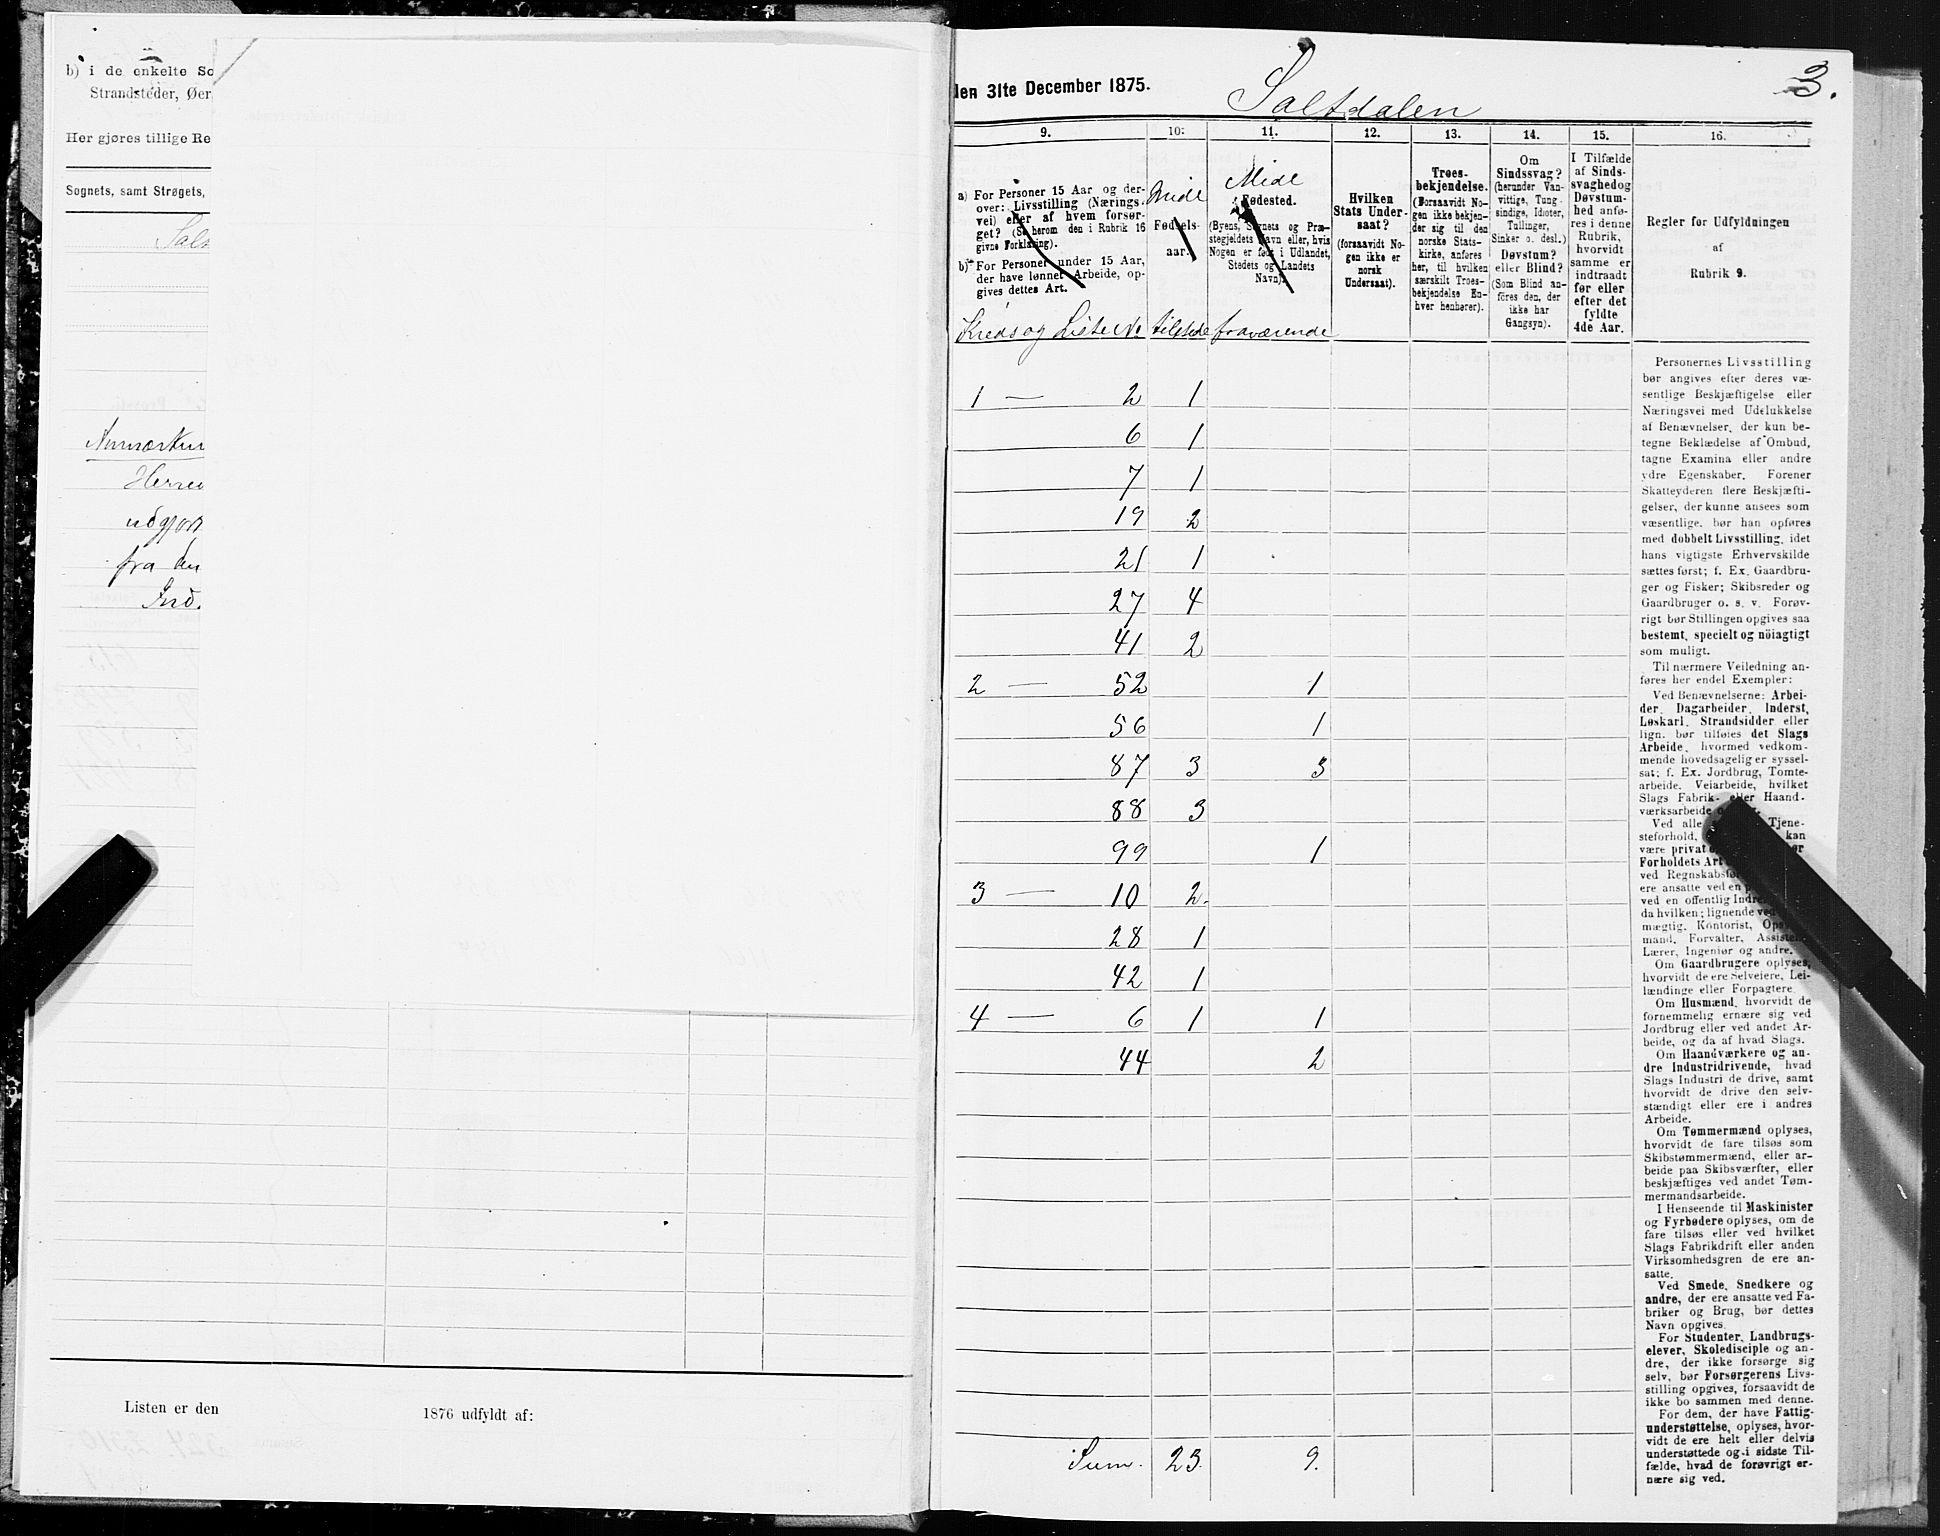 b) i de enkelte So
Strandsteder, Øer,
Her gjøres tillige Re
Sognets, samt Strøgets,
Sals
Anmærkn
Herre
udgjort
fra den
Ind.
Listen er den
1876 udfyldt af:
den 31te December 1875.
Saltdalen
3.
9. 10. 11. 12. 13. 14. 15. 16.
a) For Personer 15 Aar og der-
over: Livsstilling (Nærings-
vei) eller af hvem forsør-
get? (Se herom den i Rubrik 16
givne Forklaring).
b) For Personer under 15 Aar,
der have lønnet Arbeide, op-
gives dettes Art.
Mide
Fødsels-
aar.
Mide
Fødested.
(Byens, Sognets og Præ-
stegjeldets Navn eller, hvis
Nogen er født i Udlandet,
Stedets og Landets
Navn).
Hvilken
Stats Under-
saat?
(forsaavidt No-
gen ikke er
norsk
Undersaat).
Troes-
bekjendelse.
(Forsaavidt No-
gen ikke bekjen-
der sig til den
norske Stats-
kirke, anføres
her, til hvilken
særskilt Troes-
bekjendelse En-
hver henhører).
Om
Sindssvag?
(herunder Van-
vittige, Tung-
sindige, Idioter,
Tullinger,
Sinker o. desl.)
Døvstum?
eller Blind?
(Som Blind an-
føres den, der
ikke har
Gangsyn).
I Tilfælde
af Sinds-
svaghed og
Døvstum-
hed anfø-
res i denne
Rubrik,
hvorvidt
samme er
indtraadt
før eller
efter det
fyldte
4de Aar.
Regler før Udfyldningen
af
Rubrik 9.
Kreds og Liste No. tilstede fraværende
1 — 2 1
6 1
7 1
19 2
21 1
27 4
41 2
2 — 52 1
56 1
87 3 3
88 3
99 1
3 — 10 2.
28 1
42 1
4 — 6 1 1
44 2
Sum. 23. 9.
Personernes Livsstilling
bør angives efter deres væ-
sentlige Beskjæftigelse eller
Næringsvei med Udelukkelse
af Benævnelser, der kun be-
tegne Beklædelse af Ombud,
tagne Examina eller andre
ydre Egenskaber. Forener
Skatteyderen flere Beskjæfti-
gelser, der kunne ansees som
væsentlige, bør han opføres
med dobbelt Livsstilling, idet
hans vigtigste Erhvervskilde
sættes først; f. Ex. Gaardbru-
ger og Fisker; Skibsreder og
Gaardbruger o. s. v. Forøv-
rigt bør Stillingen opgives saa
bestemt, specielt og nöiagtigt
som muligt.
Til nærmere Veiledning an-
føres her endel Exempler:
Ved Benævnelserne: Arbei-
der, Dagarbeider, Inderst,
Løskarl, Strandsidder eller
lign. bør tilføies det Slags
Arbeide, hvormed vedkom-
mende hovedsagelig er syssel-
sat; f. Ex. Jordbrug, Tomte-
arbeide, Veiarbeide, hvilket
Slags Fabrik- eller Haand-
værksarbeide
Ved alle Tjene-
steforhold, kan
være privat
Forholdets Art
ved Regnskabsfør
ere ansatte ved en
ved en offentlig Indre
da hvilken; lignende ved
mægtig, Kontorist, Ops
mand, Forvalter, Assistent,
Lærer, Ingeniør og andre.
Om Gaardbrugere oplyses,
hvorvidt de ere Selveiere, Lei-
lændinge eller Forpagtere.
Om Husmænd, hvorvidt de
fornemmelig ernære sig ved
Jordbrug eller ved andet Ar-
beide, og da af hvad Slags.
Om Haandværkere og an-
dre Industridrivende, hvad
Slags Industri de drive, samt
hvorvidt de drive den selv-
stændigt eller ere i andres
Arbeide.
Om Tømmermænd oplyses,
hvorvidt de fare tilsøs som
Skibstømmermænd, eller ar-
beide paa Skibsværfter, eller
beskjæftiges ved andet Tøm-
mermandsarbeide.
I Henseende til Maskinister
og Fyrbødere oplyses, om de
fare tilsøs eller ved hvilket
Slags Fabrikdrift eller anden
Virksomhedsgren de ere an-
satte.
Ved Smede, Snedkere og
andre, der ere ansatte ved Fa-
briker og Brug, bør dettes
Navn opgives.
For Studenter, Landbrugs-
elever, Skoledisciple og an-
dre, der ikke forsørge sig
selv, bør Forsørgerens Livs-
stilling opgives, forsaavidt de
ikke bo sammen med denne.
For dem, der have Fattig-
understøttelse, oplyses, hvor-
vidt de ere helt eller delvis
understøttede og i sidste Til-
fælde, hvad de forøvrigt er-
nære sig ved.